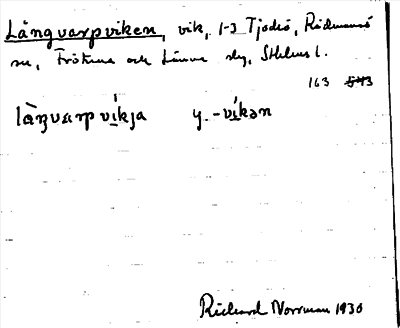 Långvarpviken, vik, 1-3 Tjockö, Rådmansö
sn, Frötuna och Länna slg, Sthlms l.
163 543
làŋvarpvíkja y. -víkən
Richard Norrman 1930